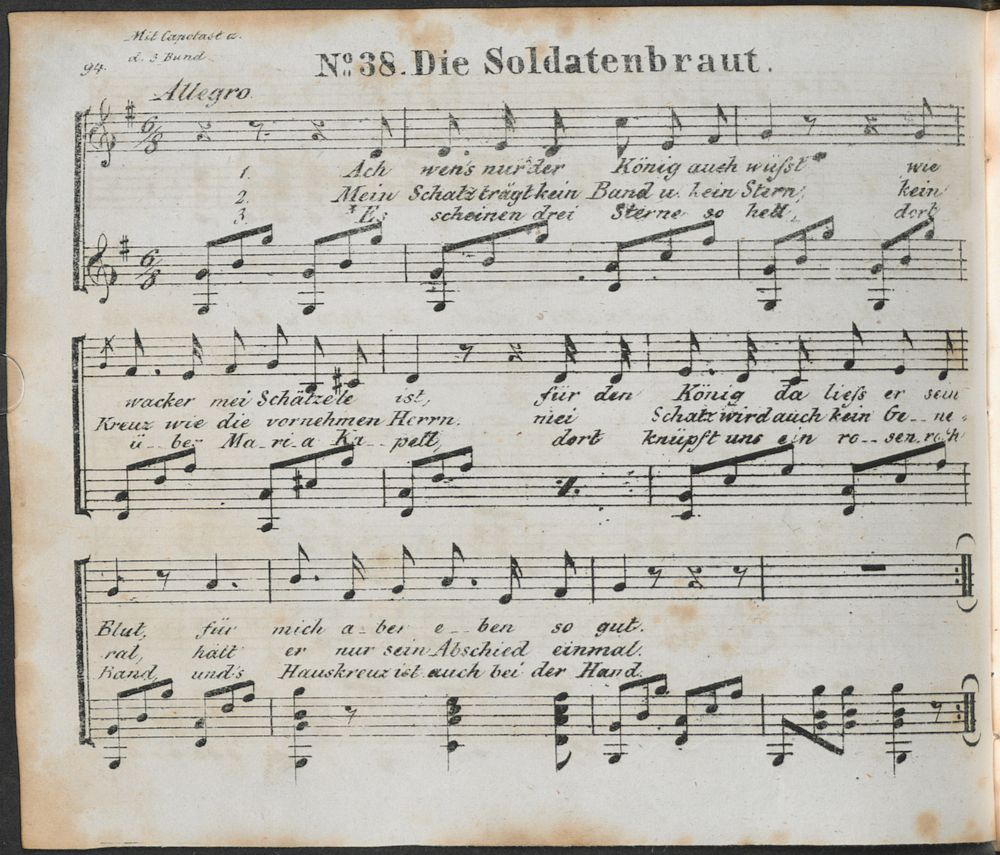 Mit Capotast a.
d. 3 Bund
94.
No 38. Die Soldatenbraut.
Allegro.
1. Ach wen's nur der König auch wüſst wie
2. Mein Schatz trägt kein Band u. kein Stern, kein
3. Es scheinen drei Sterne so hell, dort
wacker mei Schätzele ist, für den König da lieſs er sein
Kreuz wie die vornehmen Herrn. mei Schatz wird auch kein Ge-- ne-
ü-- ber Ma-ri-a Ka-- pell, dort knüpft uns ein ro-- sen roth
Blut, für mich a-ber e-- ben so gut.
ral, hätt er nur sein Abschied einmal.
Band und's Hauskreuz ist auch bei der Hand.